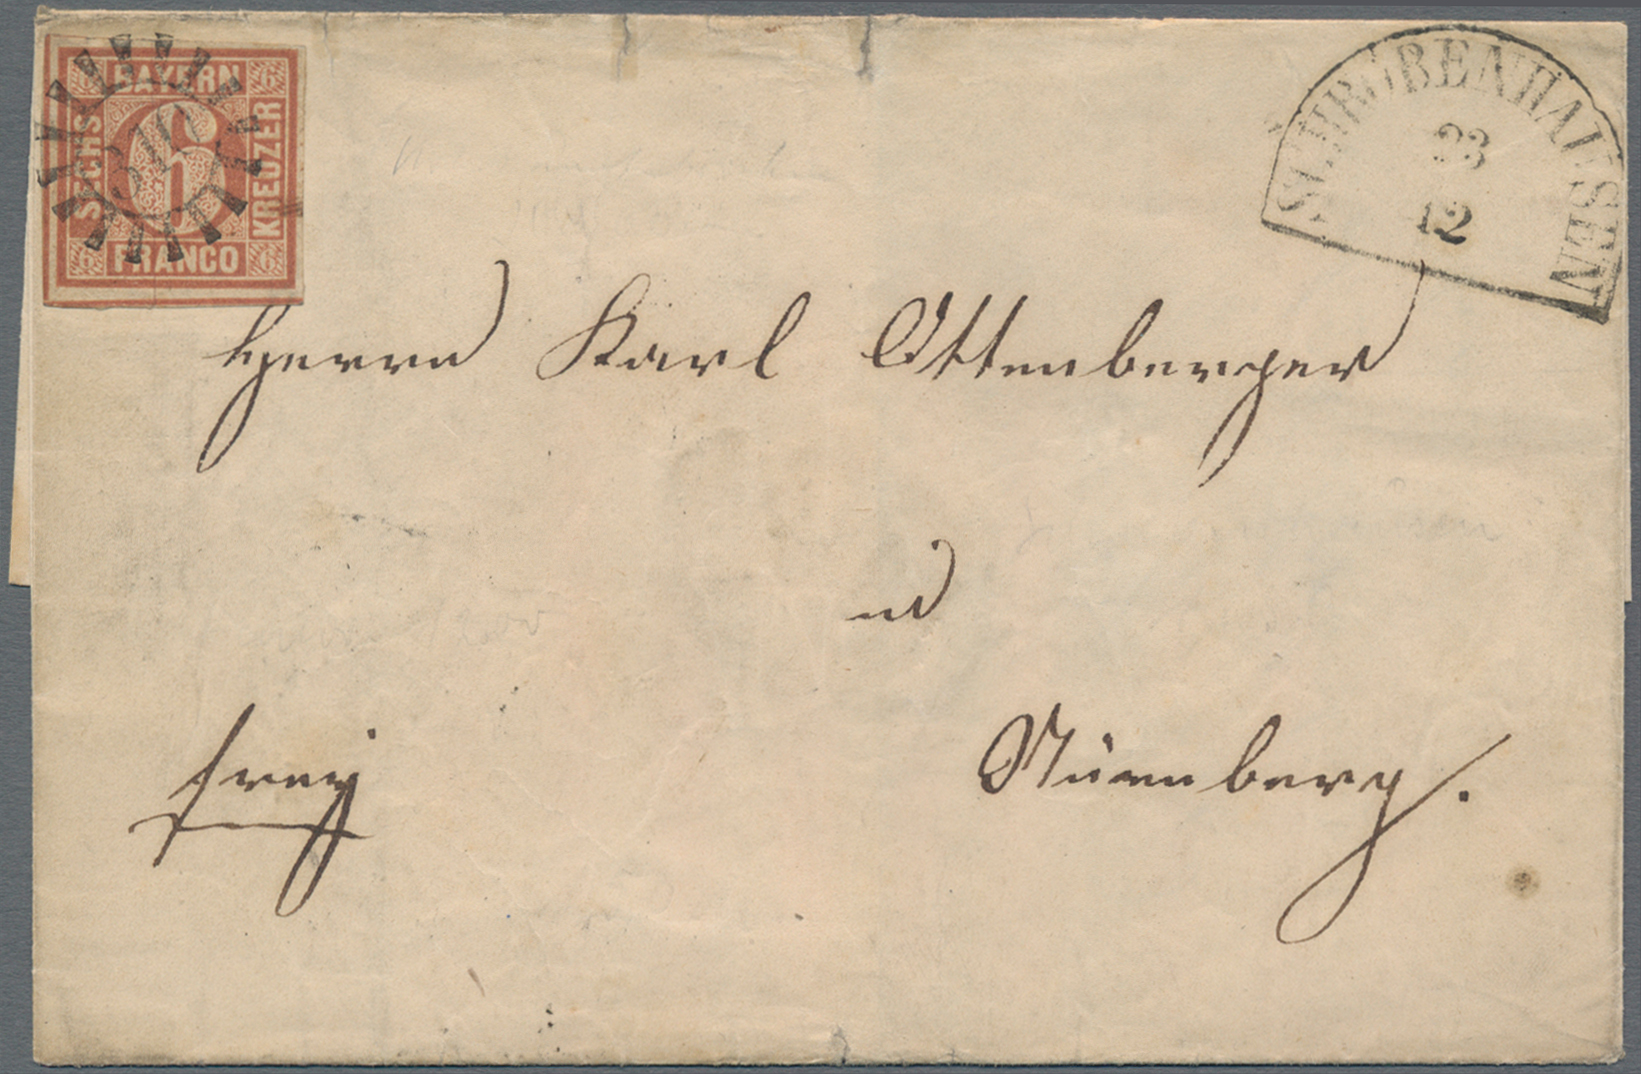 BAYERN
SECHS
KREUZER
FRANCO
6
6
6
6
310
SCHROBENHAUSEN
23
12
Herrn Karl Ottenberger
in
frey
Nürnberg.